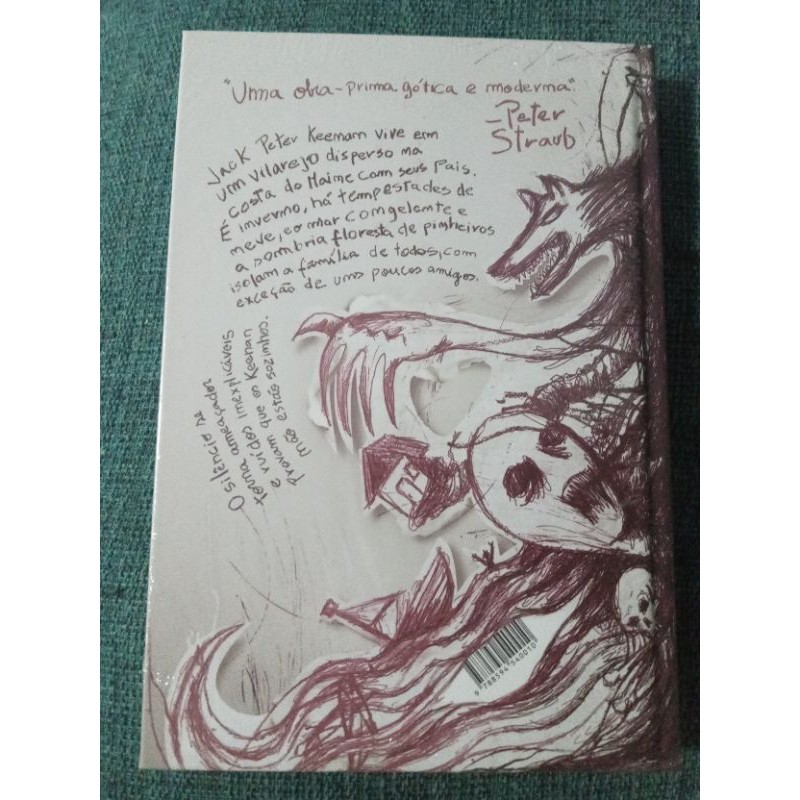 "Uma obra-prima gótica e moderna".
—Peter
Straub
Jack Peter Keenan vive em
um vilarejo disperso na
costa do Maine com seus pais.
É inverno, há tempestades de
neve, e o mar congelante e
a sombria floresta de pinheiros
isolam a família de todos, com
exceção de uns poucos amigos.
O silêncio na
torna ameaçador
e ruídos inexplicáveis
provam que os Keenan
não estão sozinhos.
9 788594 540010